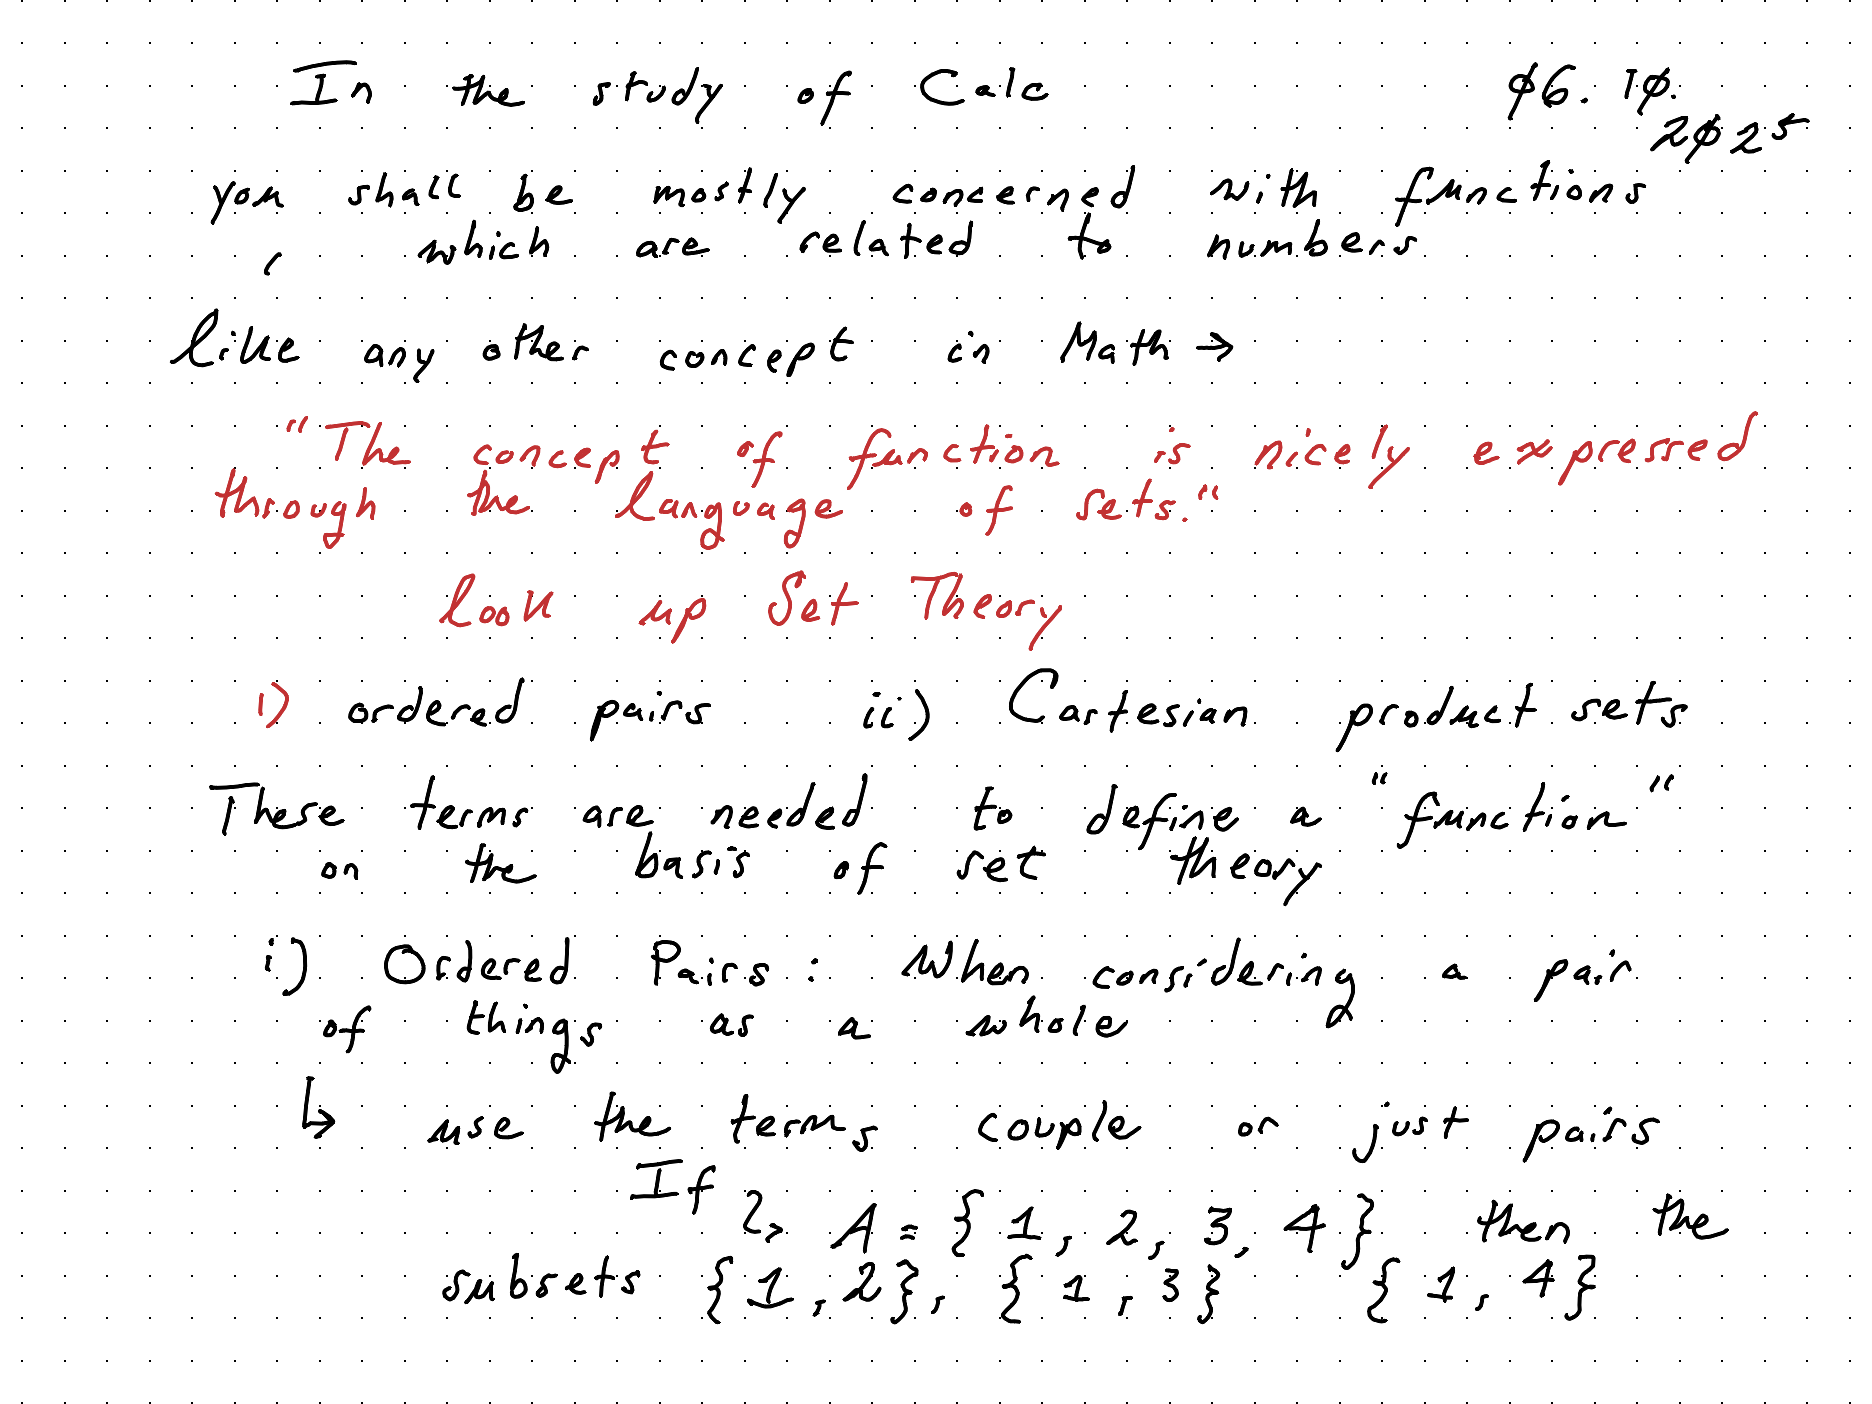 In the study of Calc
06.10.
2025
you shall be mostly concerned with functions
, which are related to numbers
like any other concept in Math →
"The concept of function is nicely expressed
through the language of sets."
look up Set Theory
i) ordered pairs ii) Cartesian product sets
These terms are needed to define a "function"
on the basis of set theory
i) Ordered Pairs: When considering a pair
of things as a whole
↳ use the terms couple or just pairs
If
↳ A = {1, 2, 3, 4} then the
subsets {1, 2}, {1, 3} {1, 4}